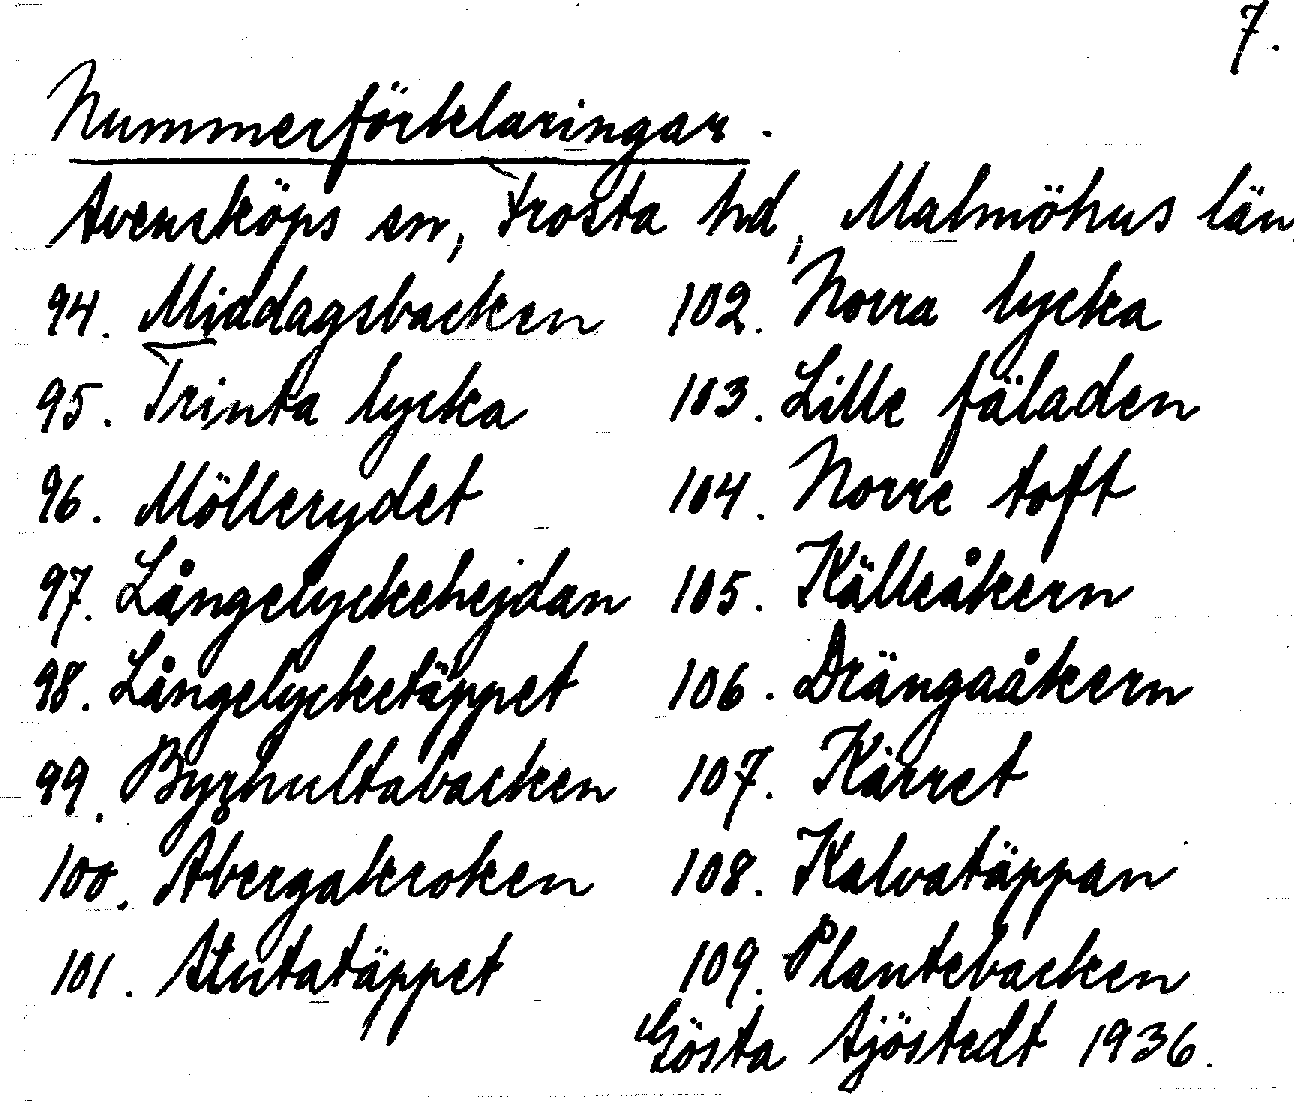 7.
Nummerförklaringar.
Svensköps sn, Frosta hd, Malmöhus län.
94. Middagsbacken
95. Trinta lycka
96. Möllerydet
97. Långelyckehejdan
98. Långelycketäppet
99. Byrhultabacken
100. Åbergakroken
101. Stutatäppet
102. Norra lycka
103. Lille fäladen
104. Norre toft
105. Källeåkern
106. Drängaåkern
107. Kärret
108. Kalvatäppan
109. Plantebacken
Gösta Sjöstedt 1936.